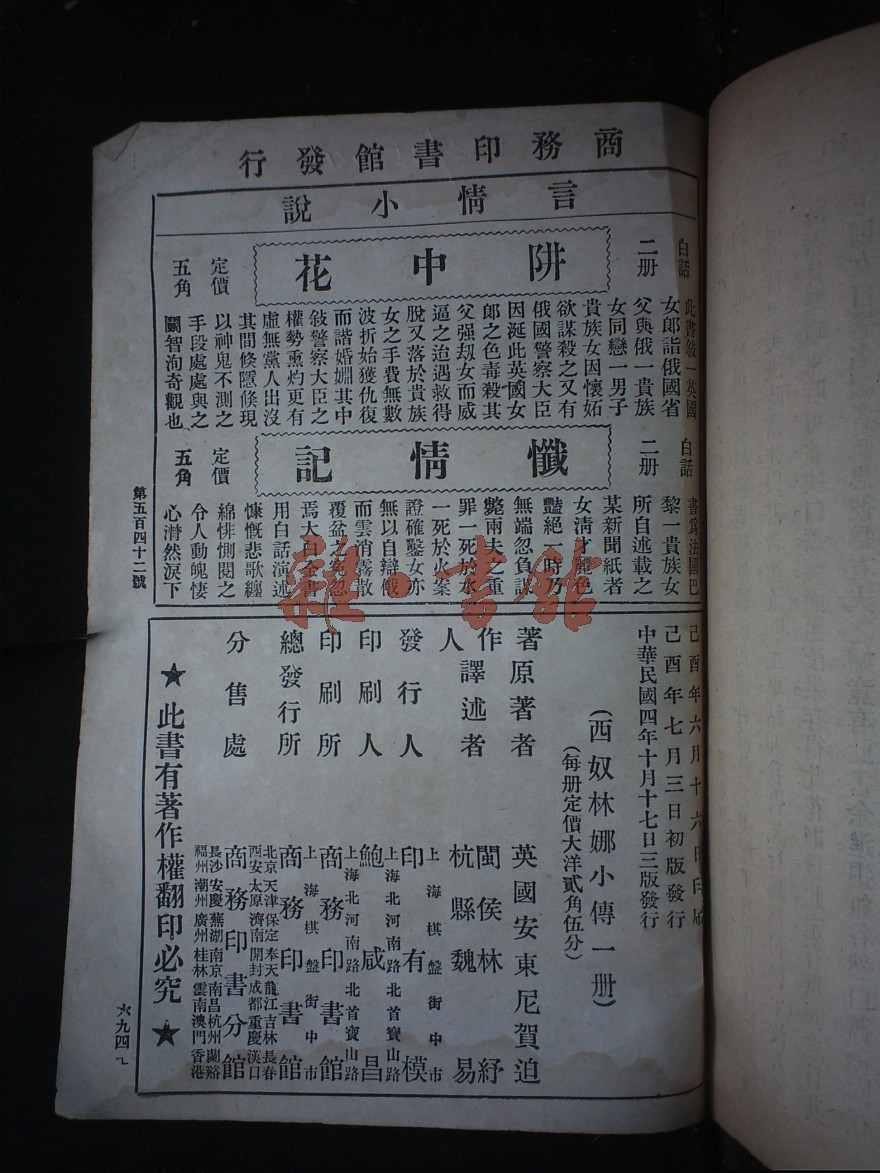 商務印書館發行
言情小說
白話
二册
阱中花
定價
五角
此書敍一英國
女郞詣俄國省
父與俄一貴族
女同戀一男子
貴族女因懷妬
欲謀殺之又有
俄國警察大臣
因涎此英國女
郞之色毒殺其
父强刼女而威
逼之迨遇救得
脫又落於貴族
女之手費無數
波折始獲仇復
而諧婚姻其中
敍警察大臣之
權勢熏灼更有
虛無黨人出沒
其間倏隱倏現
以神鬼不測之
手段處處與之
鬬智洵奇觀也
白話
二册
懺情記
定價
五角
書爲法國巴
黎一貴族女
所自述載之
某新聞紙者
女淸才麗色
豔絕一時乃
無端忽負謀
斃兩夫之重
罪一死於水
一死於火案
證確鑿女亦
無以自辯俄
而雲消霧散
覆盆之冤忽
焉大白全書
用白話演述
慷慨悲歌纏
綿悱惻閱之
令人動魄悽
心潸然淚下
第五百四十二號
己酉年六月十六日印版
己酉年七月三日初版發行
中華民國四年十月十七日三版發行
(西奴林娜小傳一册)
(每册定價大洋貳角伍分)
著作人
原著者 英國安東尼賀迫
譯述者 閩侯林紓
杭縣魏易
發行人 印有模
上海棋盤街中市
印刷人 鮑咸昌
上海北河南路北首寶山路
印刷所 商務印書館
上海北河南路北首寶山路
總發行所 商務印書館
上海棋盤街中市
分售處 商務印書分館
北京天津保定奉天龍江吉林長春
西安太原濟南開封成都重慶漢口
長沙安慶蕪湖南京南昌杭州蘭谿
福州潮州廣州桂林雲南澳門香港
★此書有著作權翻印必究★
六九四
雜·書館